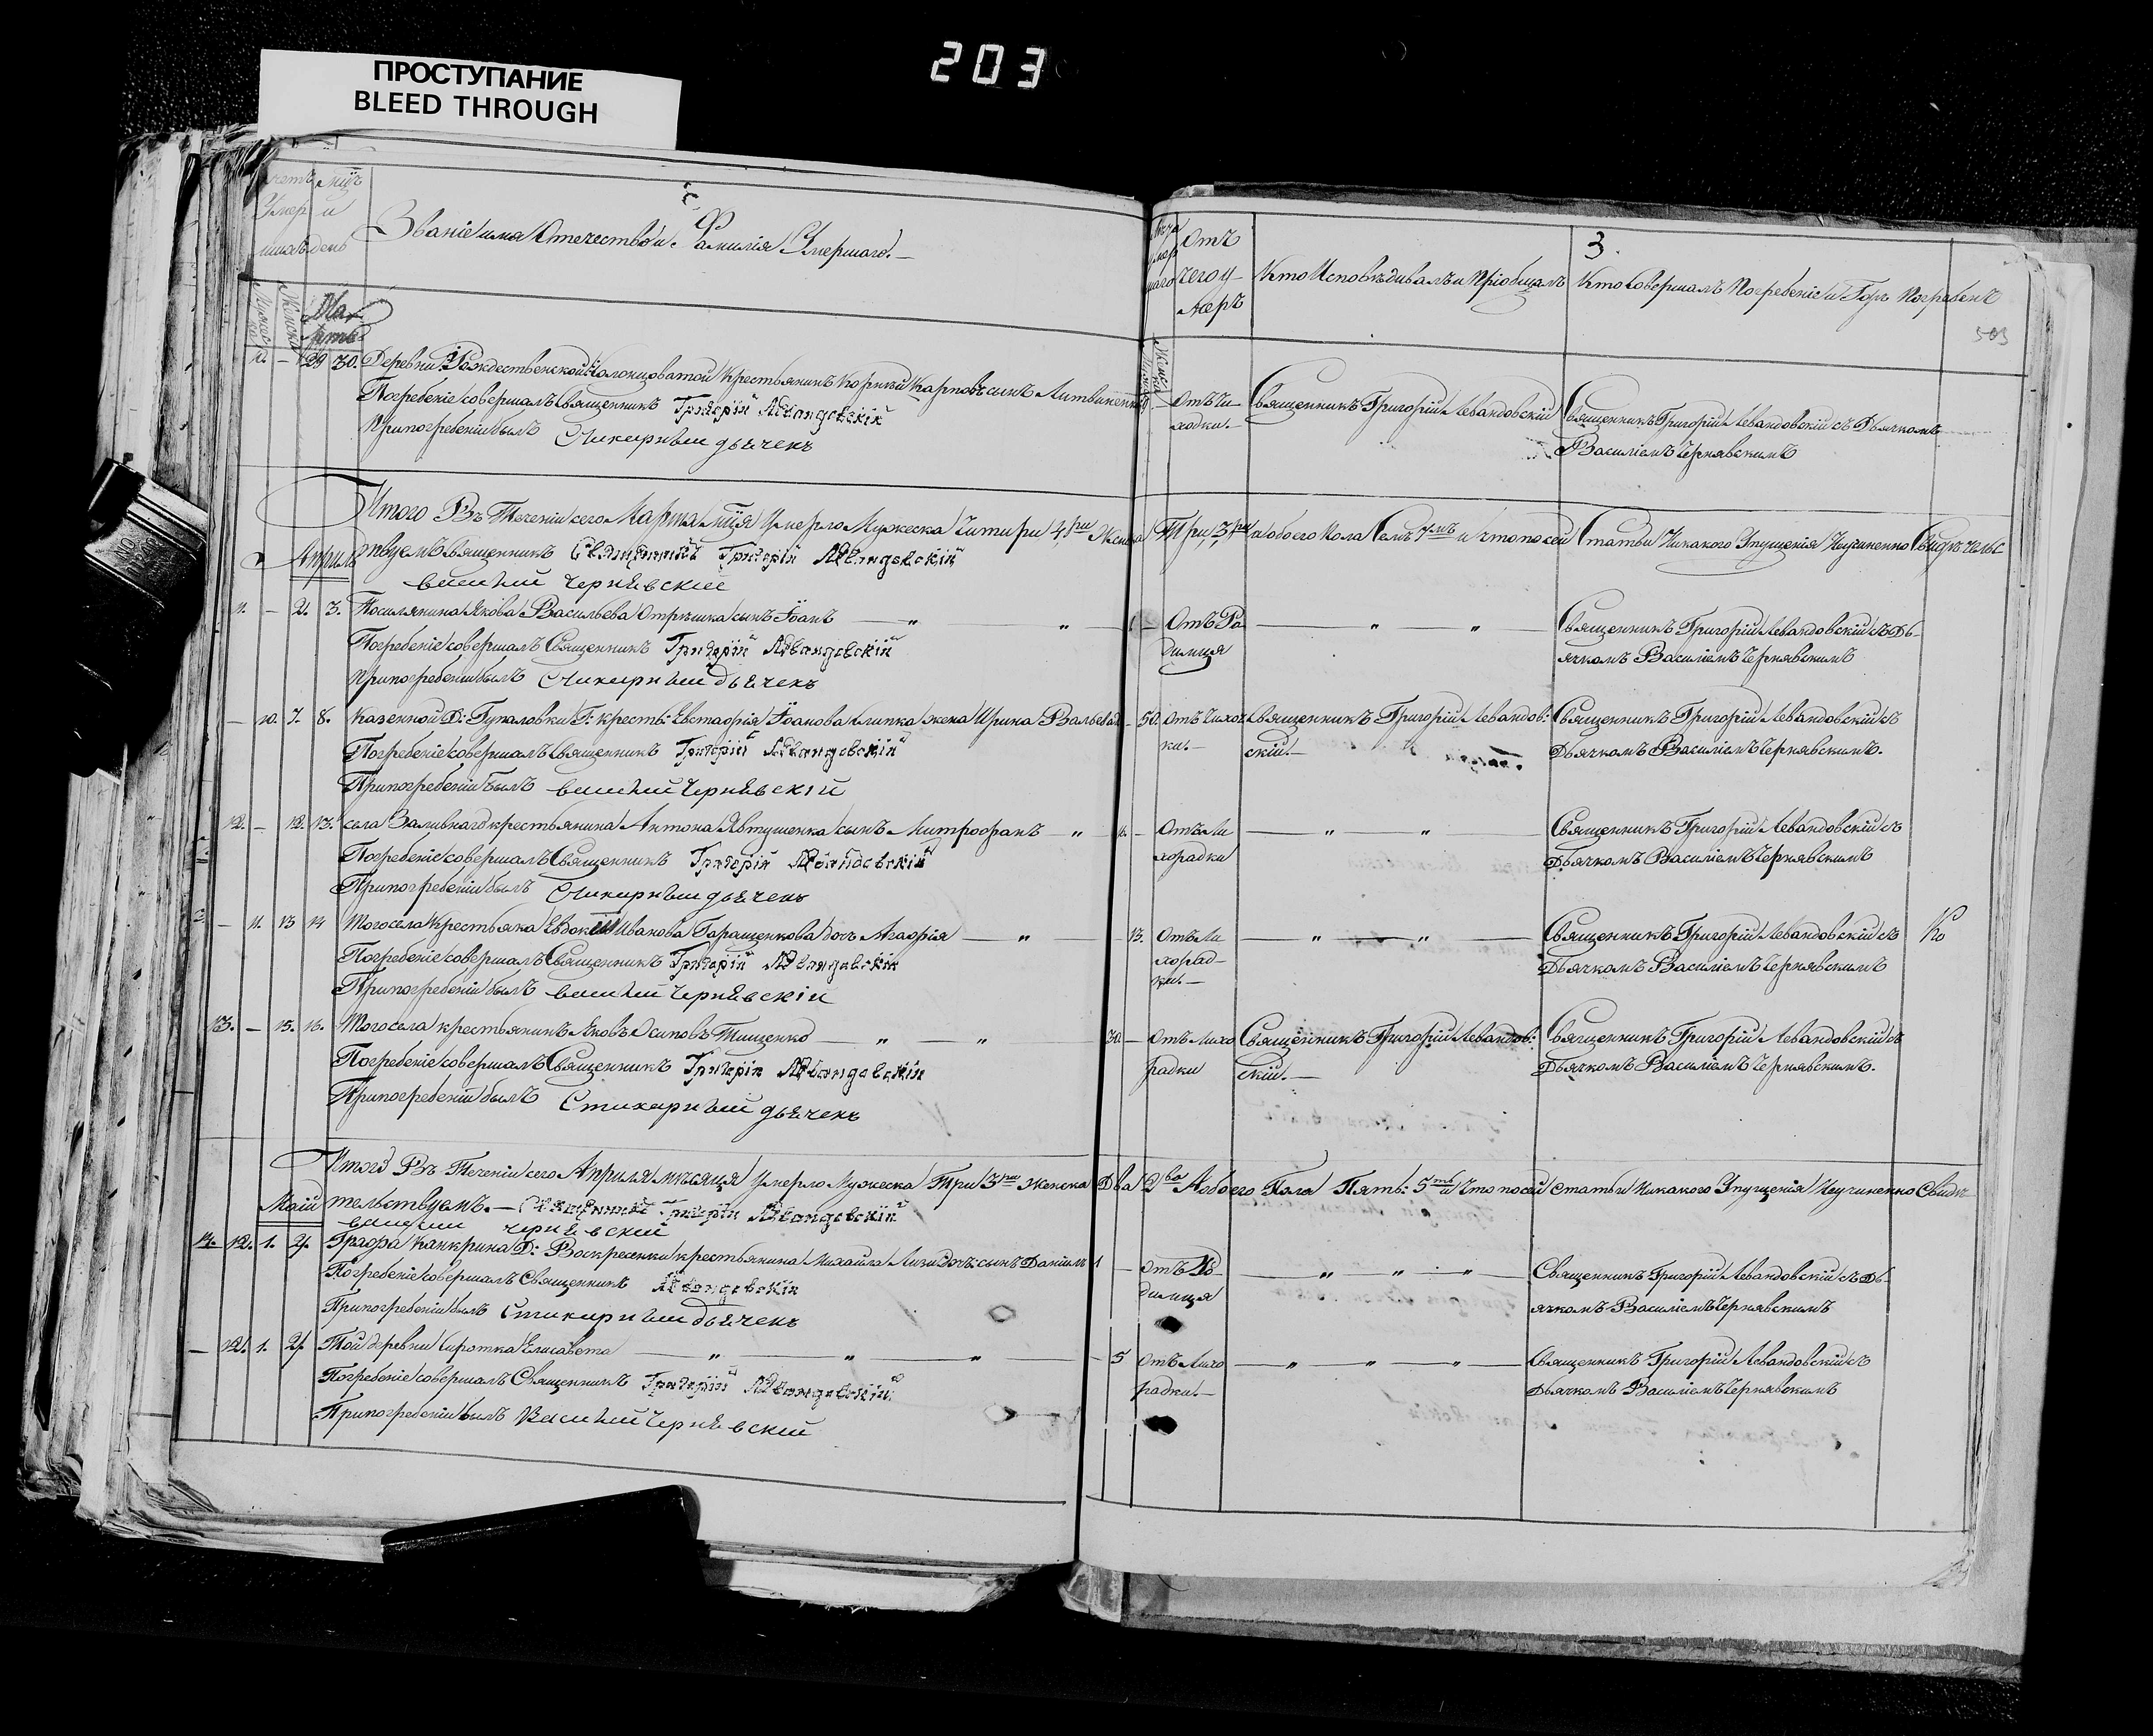 ПРОСТУПАНИЕ
BLEED THROUGH
203
Званіе имя Отечество и Фамилія Умершаго.
Отъ чего умеръ
Кто Исповѣдивалъ и Пріобщалъ
3.
Кто Совершалъ Погребеніе и Гдѣ Погребенъ
503
Мартъ
29 30. Деревни Рождественской крестьянинъ Корній Карповъ сынъ Литвиненко
Отъ чихотки. Священникъ Григорій Левандовскій
Священникъ Григорій Левандовскій съ Дьячкомъ
Василіемъ Чернявскимъ
Погребеніе совершалъ Священникъ Григорій Левандовскій
При погребеніи былъ Стихарный дьячекъ
Итого Въ Теченіи сего Марта мця Умерло Мужеска Читыри 4ри Женска Три 3ри а обоего Пола Семъ 7мъ и что по сей Статьи Никакого Упущенія Неучиненно Свидѣтельс
Апрель твуемъ Священникъ Григорій Левандовскій
Василий Чернявский
11. — 2. 3. Поселянина Якова Васильева Отрѣшка сынъ Іоанъ
1 — Отъ Родимца
Священникъ Григорій Левандовскій съ Дьячкомъ Василіемъ Чернявскимъ
Погребеніе совершалъ Священникъ Григорій Левандовскій
При погребеніи былъ Стихарный дьячекъ
— 10. 7. 8. Казенной Д: Гупаловки Г: кресть: Евстафія Іоанова Слипка жена Ирина
50. Отъ Чихотки. Священникъ Григорій Левандовскій.
Священникъ Григорій Левандовскій съ
Дьячкомъ Василіемъ Чернявскимъ.
Погребеніе совершалъ Священникъ Григорій Левандовскій
При погребеніи былъ Василий Чернявскій
12. — 12. 13. села Заливнаго крестьянина Антона Явтушенка сынъ Митрофанъ
Отъ Лихорадки
Священникъ Григорій Левандовскій съ
Дьячкомъ Василіемъ Чернявскимъ
Погребеніе совершалъ Священникъ Григорій Левандовскій
При погребеніи былъ Стихарный дьячекъ
— 11. 13 14 Того села Иванова Геращенкова дочь Агафія
13. Отъ Лихорадки.
Священникъ Григорій Левандовскій съ
Дьячкомъ Василіемъ Чернявскимъ
Погребеніе совершалъ Священникъ Григорій Левандовскій
При погребеніи былъ Василий Чернявскій
13. — 15. 16. Того села крестьянинъ Яковъ Осиповъ Тищенко
30. — Отъ Лихорадки
Священникъ Григорій Левандовскій.
Священникъ Григорій Левандовскій съ
Дьячкомъ Василіемъ Чернявскимъ.
Погребеніе совершалъ Священникъ Григорій Левандовскій
При погребеніи былъ Стихарный дьячекъ
Итого Въ Теченіи сего Апреля мѣсяця Умерло Мужеска Три 3ри Женска Два 2ва Аобоего Пола Пять: 5ть и Что по сей статьи Никакого Упущенія Неучиненно Свидѣ
Маій тельствуемъ. — Григорій Левандовскій
Василий Чернявский
14. 12. 1. 2. Графа Канкрина Д: Воскресенки крестьянина Михайла сынъ Даніилъ
1 — Отъ Родимця
Священникъ Григорій Левандовскій съ Дьячкомъ Василіемъ Чернявскимъ
Погребеніе совершалъ Священникъ Левандовскій
При погребеніи былъ Стихарный дьячекъ
— 12. 1. 2. Той деревни сиротка Елисавета
— 5 Отъ Лихорадки. —
Священникъ Григорій Левандовскій съ
Дьячкомъ Василіемъ Чернявскимъ
Погребеніе совершалъ Священникъ Григорій Левандовскій
При погребеніи былъ Василий Чернявский